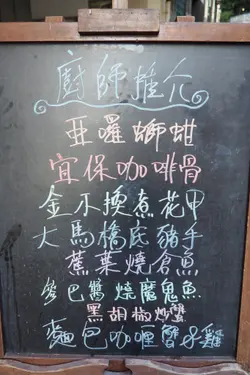 廚師推介
亞囉螄蚶
宜保咖啡骨
金不換煮花甲
大馬橋底豬手
蕉葉燒倉魚
叁巴醬燒魔鬼魚
黑胡椒炒蟹
麵包咖喱蟹&雞